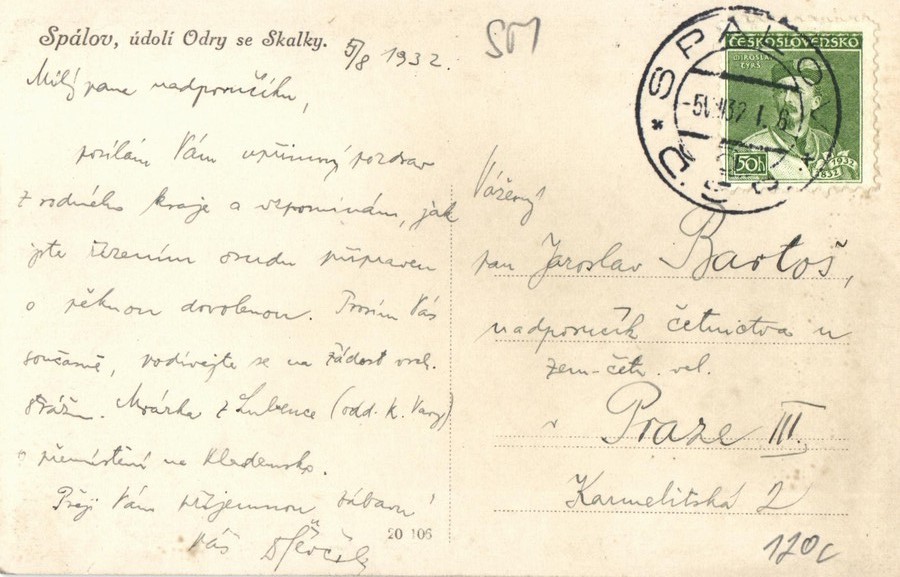 Spálov, údolí Odry se Skalky. 5/8 1932.
Milý pane nadporučíku,
posílám Vám upřímný pozdrav
z rodného kraje a vzpomínám, jak
jste řízením osudu připraven
o pěknou dovolenou. Prosím Vás
současně, podívejte se na žádost vrch.
strážm. Mrázka z Lubence (odd. K. Vary)
o přemístění na Kladensko.
Přeji Vám příjemnou zábavu!
Váš
20 106
SM
SPÁLOV
ČESKOSLOVENSKO
MIROSLAV
TYRŠ
50h
1932
1832
Vážený
pan Jaroslav Bartoš,
nadporučík četnictva u
zem. čet. vel.
v Praze III.
Karmelitská 2
120c